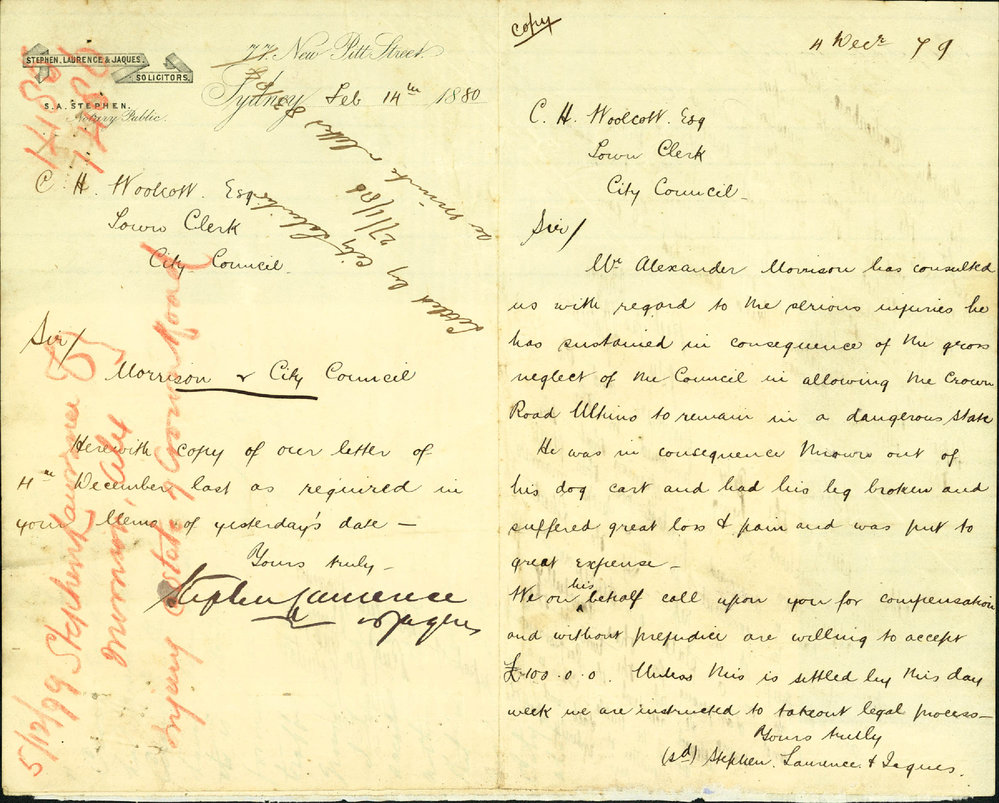 STEPHEN, LAURENCE & JAQUES.
SOLICITORS.
S. A. STEPHEN.
Notary Public.
77 New Pitt Street.
Sydney Feb 14th 1880
C. H. Woolcott. Esq
Town Clerk
City Council.
Sir/
Morrison v City Council
Herewith copy of our letter of
4th December last as required in
your Memo of yesterday's date —
Yours truly —
Stephen Laurence
& Jaques
Settled by City Solicitor
27/1/80
as minute
5/12/79 Stephen Laurence & J
Morrison, Alex
Injury State of Crown Road
copy
4 Decr 79
C. H. Woolcott. Esq
Town Clerk
City Council.
Sir/
Mr Alexander Morrison has consulted
us with regard to the serious injuries he
has sustained in consequence of the gross
neglect of the Council in allowing the Crown
Road Ultimo to remain in a dangerous state
He was in consequence thrown out of
his dog cart and had his leg broken and
suffered great loss & pain and was put to
great expense —
We on his behalf call upon you for compensation
and without prejudice are willing to accept
£100.0.0. Unless this is settled by this day
week we are instructed to takeout legal process —
Yours truly
(sd) Stephen. Laurence & Jaques.